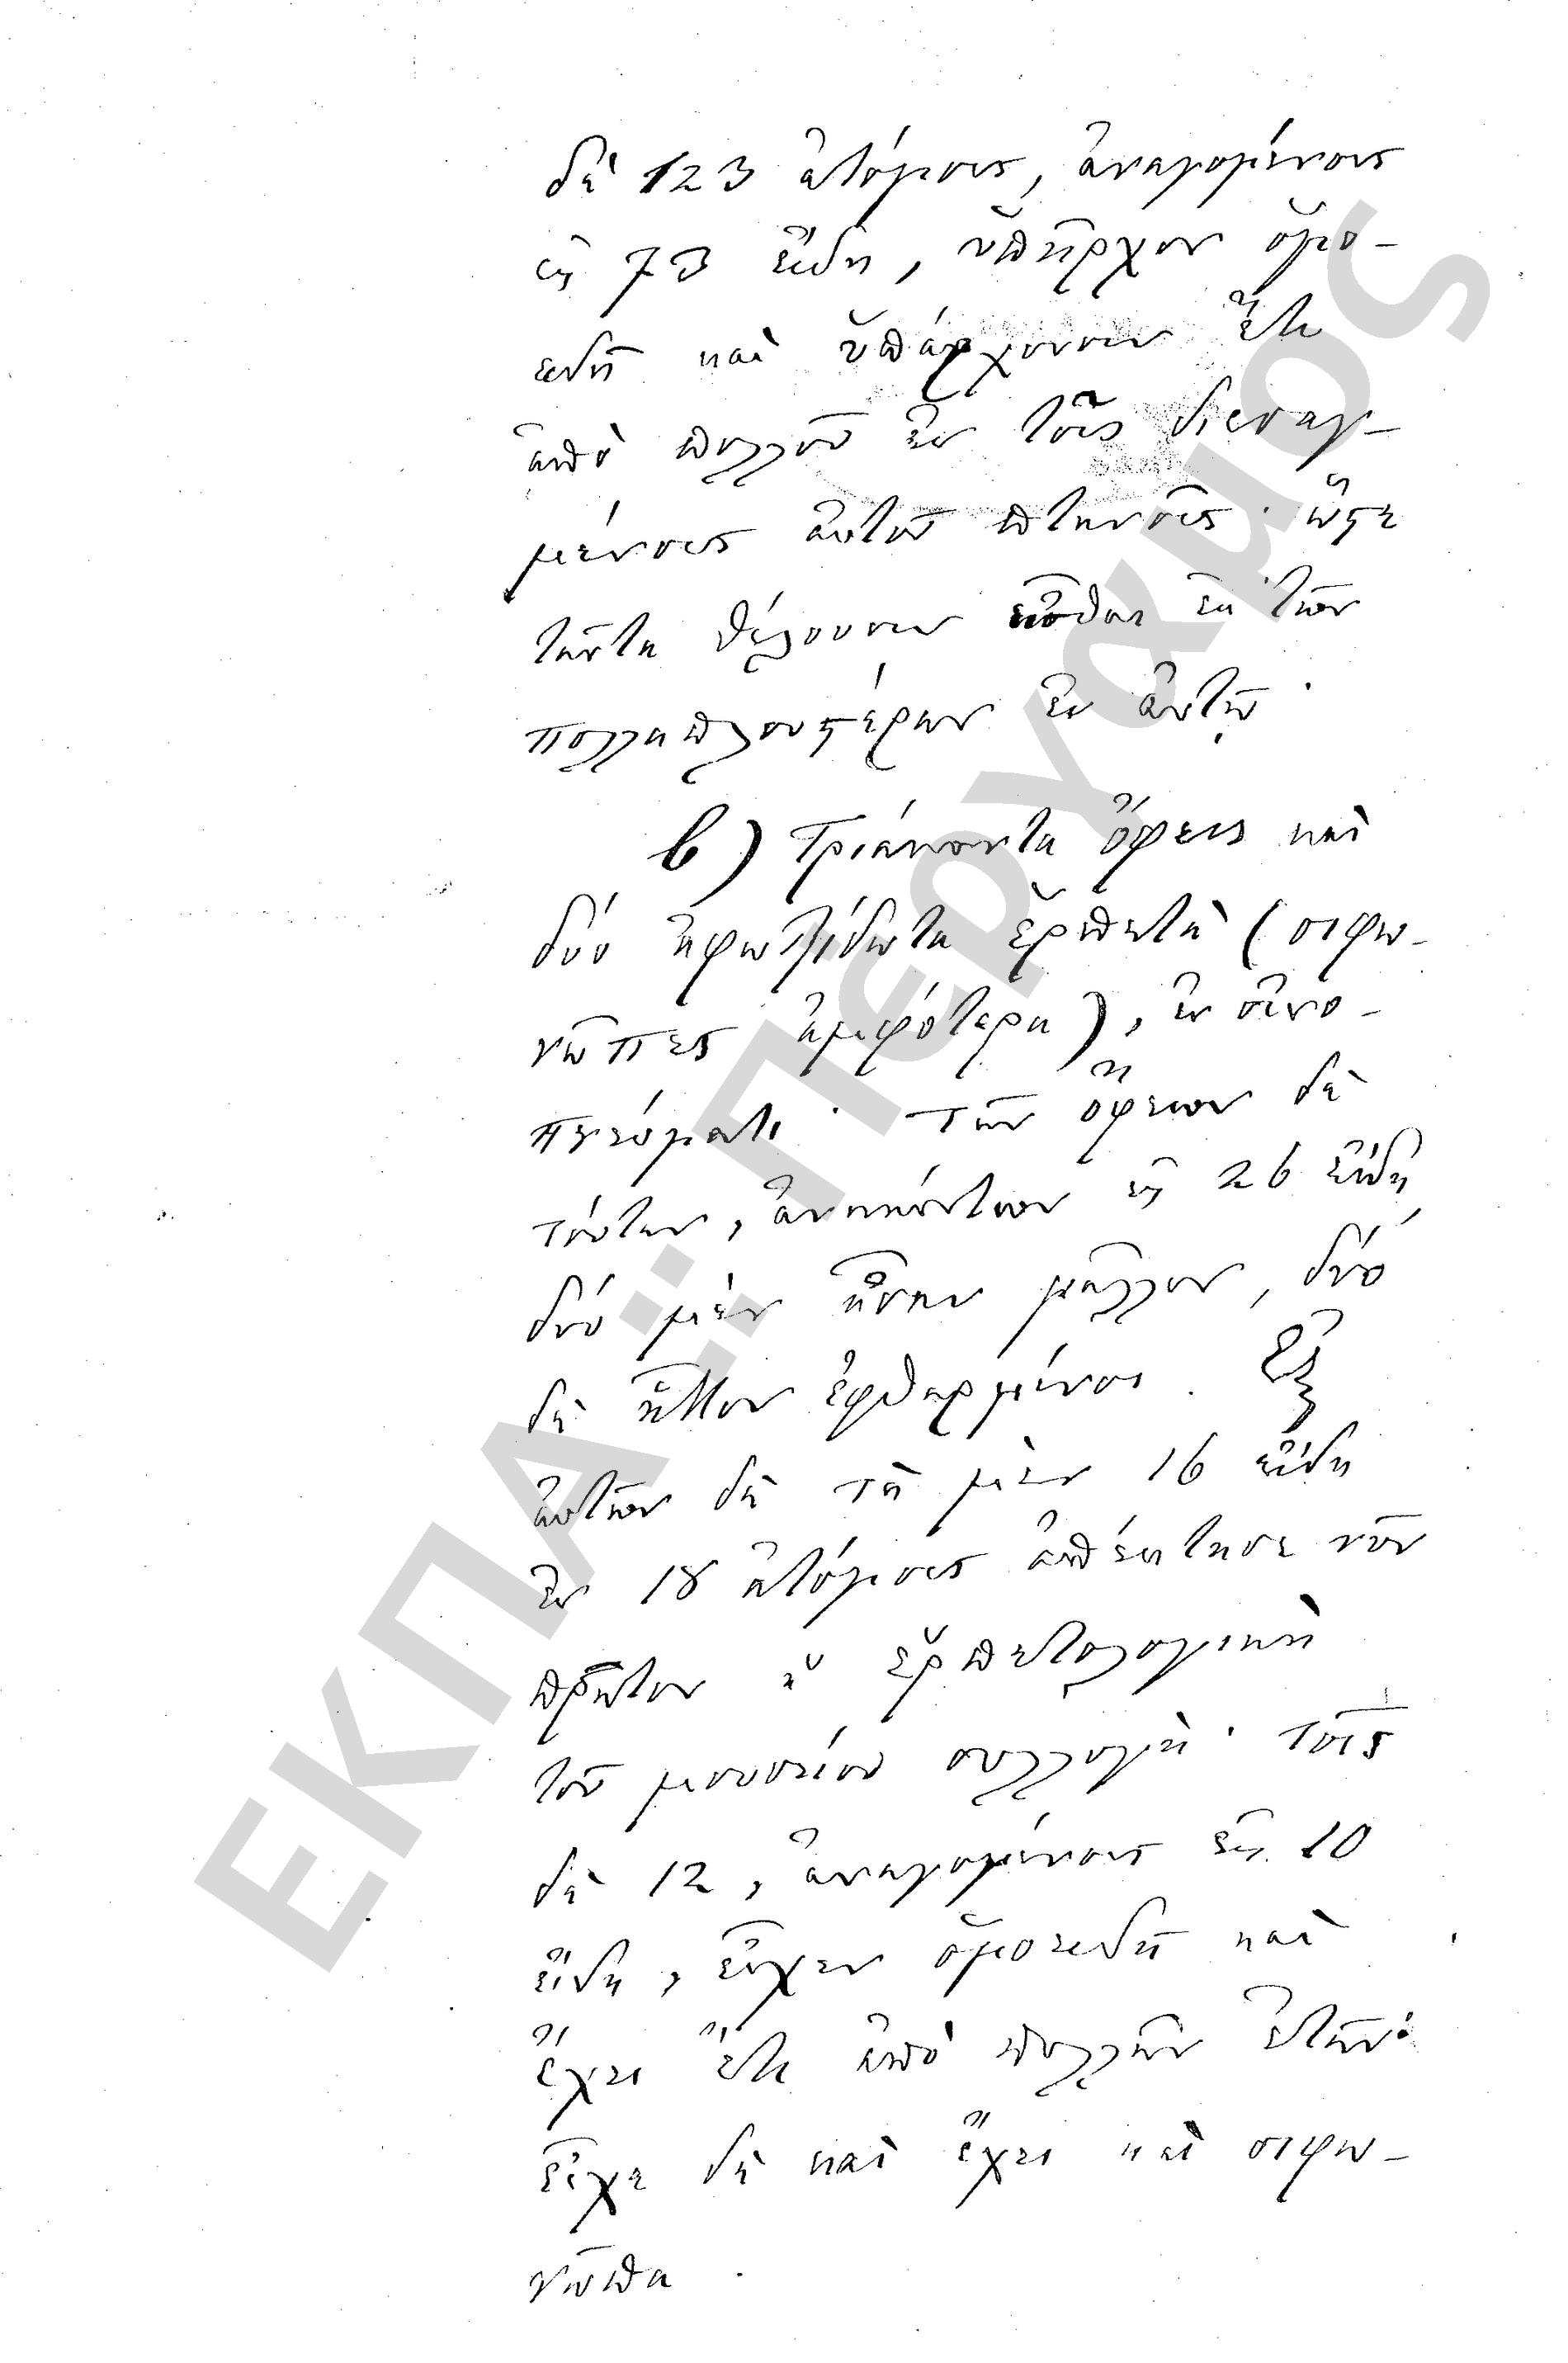 δὲ 123 ἀτόμοις, ἀναγομένοις
εἰς 73 εἴδη, ὑπῆρχον ὁμο-
ειδῆ καὶ ὑπάρχουσιν ἔτι
ἀπὸ πολλοῦ ἐν τοῖς
μένοις αὐτοῦ πτηνοῖς· ὥστε
ταῦτα θέλουσιν εἶσθαι ἐκ τῶν
πολλαπλουστέρων ἐν αὐτῷ.
β) Τριάκοντα ὄφεις καὶ
δύο ἀφωλίδωτα ἑρπετὰ (σιφω-
νῶπες ἀμφότερα), ἐν οἰνο-
πνεύματι. Τῶν ὄφεων δὲ
τούτων, ἀνηκόντων εἰς 26 εἴδη
δύο μὲν ἦσαν μᾶλλον, δύο
δὲ ἧττον ἐφθαρμένοι. Ἐξ
αὐτῶν δὲ τὰ μὲν 16 εἴδη
ἐν 18 ἀτόμοις ἀπέκτησε νῦν
πρῶτον ἡ ἑρπετολογικὴ
τοῦ μουσείου συλλογή· τοῖς
δὲ 12, ἀναγομένοις εἰς 10
εἴδη, εἶχεν ὁμοειδῆ καὶ
ἔχει ἔτι ἀπὸ πολλῶν ἐτῶν·
εἶχε δὲ καὶ ἔχει καὶ σιφω-
νῶπα.
ΕΚΠΑ: Πέργαμος